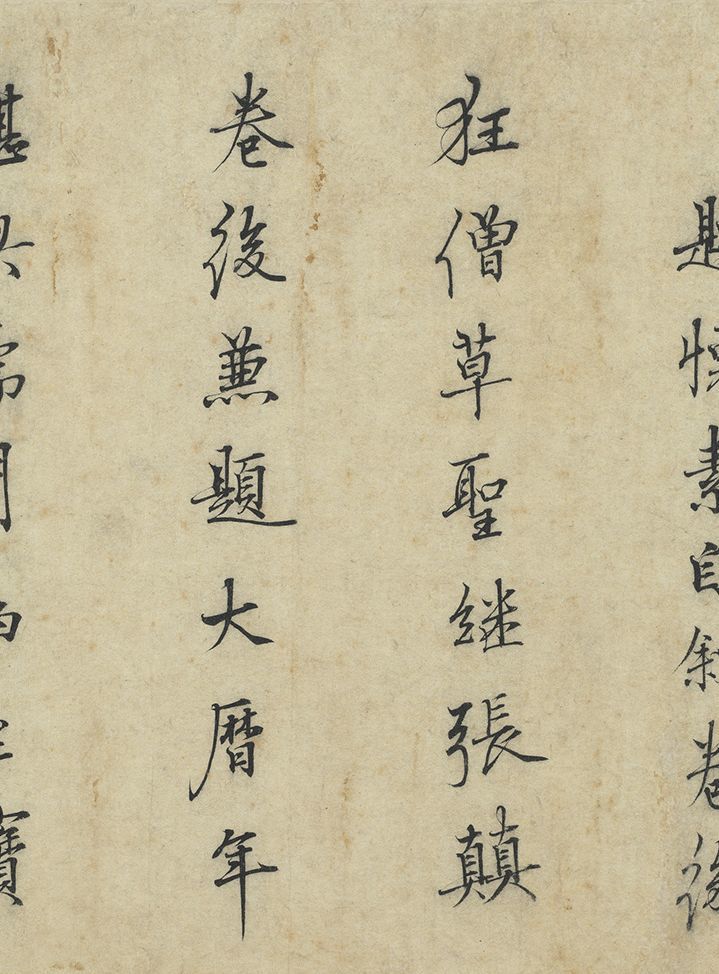 題懷素自敘卷後
狂僧草聖継張顛
卷後兼題大曆年
堪儒門寶